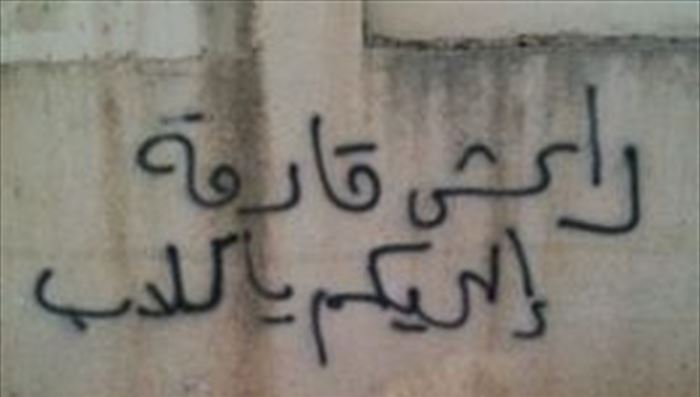 داعش قادمة
إليكم ياكلاب